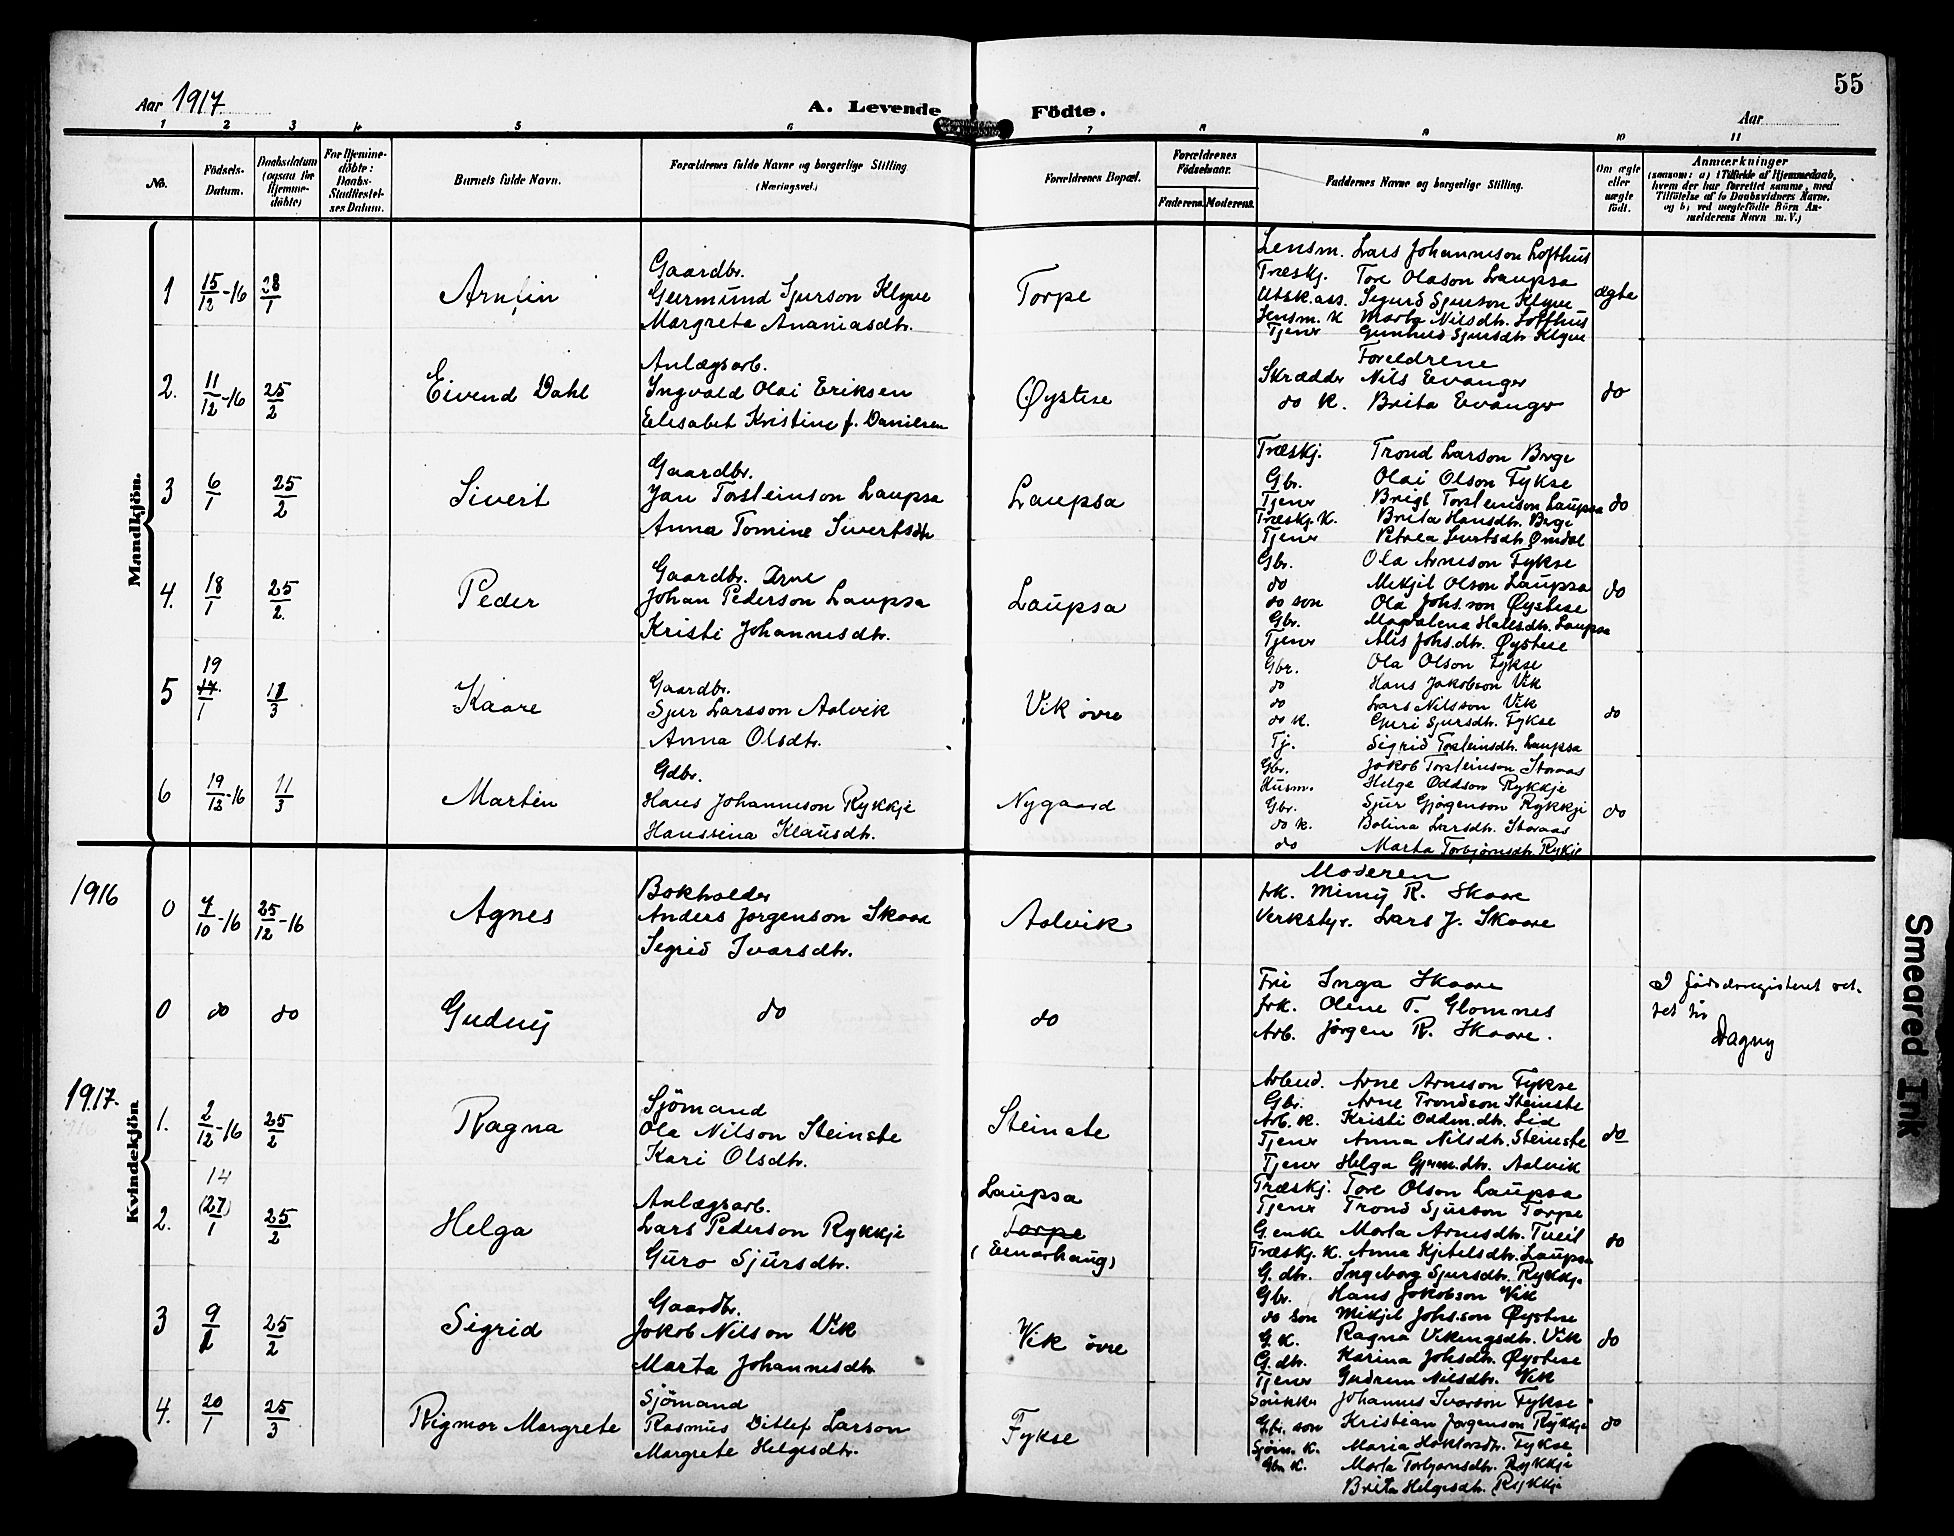 55
Aar 1917
A. Levende Födte.
Aar
1 2 3 4 5 6 7 8 9 10 11
No.
Födsels-Datum.
Daabsdatum (ogsaa for Hjemme-döbte)
For Hjemme-döbte: Daabs-Stadfestel-ses Datum.
Barnets fulde Navn.
Forældrenes fulde Navne og borgerlige Stilling (Næringsvei.)
Forældrenes Bopæl.
Forældrenes Födselsaar.
Faderens. Moderens.
Faddernes Navne og borgerlige Stilling.
Om ægte eller uægte födt.
Anmærkninger
(saasom: a) i Tilfælde af Hjemmedaab,
hvem der har forrettet samme, med
Tilföielse af to Daabsvidners Navne.
og b) ved uægtefödte Börn An-
melderens Navn m. V.)
Mandkjön.
1 15/12-16 28/1 Arnfin
Gaardbr.
Geirmund Sjurson Klyve
Margreta Ananiasdtr.
Torpe
Lensm. Lars Johannesson Lofthus
Træskj. Tore Olason Laupsa
Utsk.ass. Sigurd Sjurson Klyve
Lensm. K Marta Nilsdtr. Lofthus
Tjener Gunhild Sjursdtr Klyve
ægte
2. 11/12-16 25/2 Eivend Dahl
Anlægsarb.
Ingvald Olai Eriksen
Elisabet Kristine f. Danielsen
Øystese
Foreldrene
Skrædder Nils Evanger
do K. Brita Evanger
do
3 6/1 25/2 Sivert
Gaardbr.
Jan Torsteinson Laupsa
Anna Tomine Sivertsdtr
Laupsa
Træskj. Trond Larson Berge
Gbr. Olai Olson Fykse
Tjener Brigt Torsteinson Laupsa
Træskj. K. Brita Hansdtr. Berge
Tjener Petrea Omdal
do
4. 18/1 25/2. Peder
Gaardbr. Arne
Johan Pederson Laupsa
Kristi Johannesdtr.
Laupsa
Gbr. Ola Arneson Fykse
do Mikjel Olson Laupsa
do son Ola Johs.son Øystese
Gbr. Magdalena Hallsdtr. Laupsa
Tjener Alis Johs.dtr. Øystese
do
5 19 17/1 11/3 Kaare
Gaardbr.
Sjur Larsson Aalvik
Anna Olsdtr.
Vik øvre
Gbr. Ola Olson Fykse
do Hans Jakobson Vik
do Lars Nilsson Vik
do K. Guri Sjursdtr. Fykse
Tj. Sigrid Torsteinsdtr. Laupsa
do
6 19/12-16 11/3 Martin
Gdbr.
Hans Johanneson Rykkje
Hansina Klausdtr.
Nygaard
Gbr. Jakob Torsteinson Storaas
Husm. Helge Oddson Rykkje
Gbr. Sjur Gjørgenson Rykkje
do K. Bolina Larsdtr. Storaas
do Marta Torbjørnsdtr. Rykje
do
Kvindekjön
1916
0 7/10-16 25/12-16 Agnes
Bokholder
Anders Jørgenson Skaare
Sigrid Ivarsdtr.
Aalvik
Moderen
frk. Mimy R. Skaare
Verkstyr. Lars J. Skaare
0 do do Gudny
do
do
Fru Inga Skaare
frk. Oline T. Glomnes
Arb. Jørgen R. Skaare.
I fødselsregisteret ret-
tet til
Dagny
1917.
1. 2/12-16 25/2 Ragna
Sjömand
Ola Nilson Steinstø
Kari Olsdtr.
Steinstø
Arbeid. Arne Arneson Fykse
Gbr. Arne Trondson Steinstø
Arb. K. Kristi Oddm.dtr. Lid
Tjener Anna Nilsdtr. Steinstø
Tjener Helga Gjerm.dtr. Aalvik
do
2. 14 (27)/1 25/2 Helga
Anlægsarb.
Lars Pederson Rykkje
Guro Sjursdtr.
Laupsa
Torpe
(Einarhaug)
Træskj. Tore Olson Laupsa
Tjener Trond Sjurson Torpe
G.enke Marta Arnesdtr. Tveit
Træskj. K. Anna Kjetelsdtr. Laupsa
G. dtr. Ingeborg Sjursdtr. Rykkje
do
3 9/1 25/2 Sigrid
Gaardbr.
Jakob Nilson Vik
Marta Johannesdtr
Vik øvre
Gbr. Hans Jakobson Vik
do son Mikjel Johs.son Øystese
G. K. Ragna Vikingsdtr. Vik
G. dtr. Karina Johsdtr. Øystese
Tjener Gudrun Nilsdtr. Vik
do
4. 20/1 25/3 Rigmor Margrete
Sjömand
Rasmus Ditlef Larson
Margrete Helgesdtr.
Fykse
Johannes Ivarson Fykse
Gbr. son Kristian Jørgenson Rykkje
Sjöm. K. Maria Fykse
Gbr K. Marta Torbjørnsdtr. Rykkje
Brita Helgesdtr. Rykkje
do
Smeared Ink